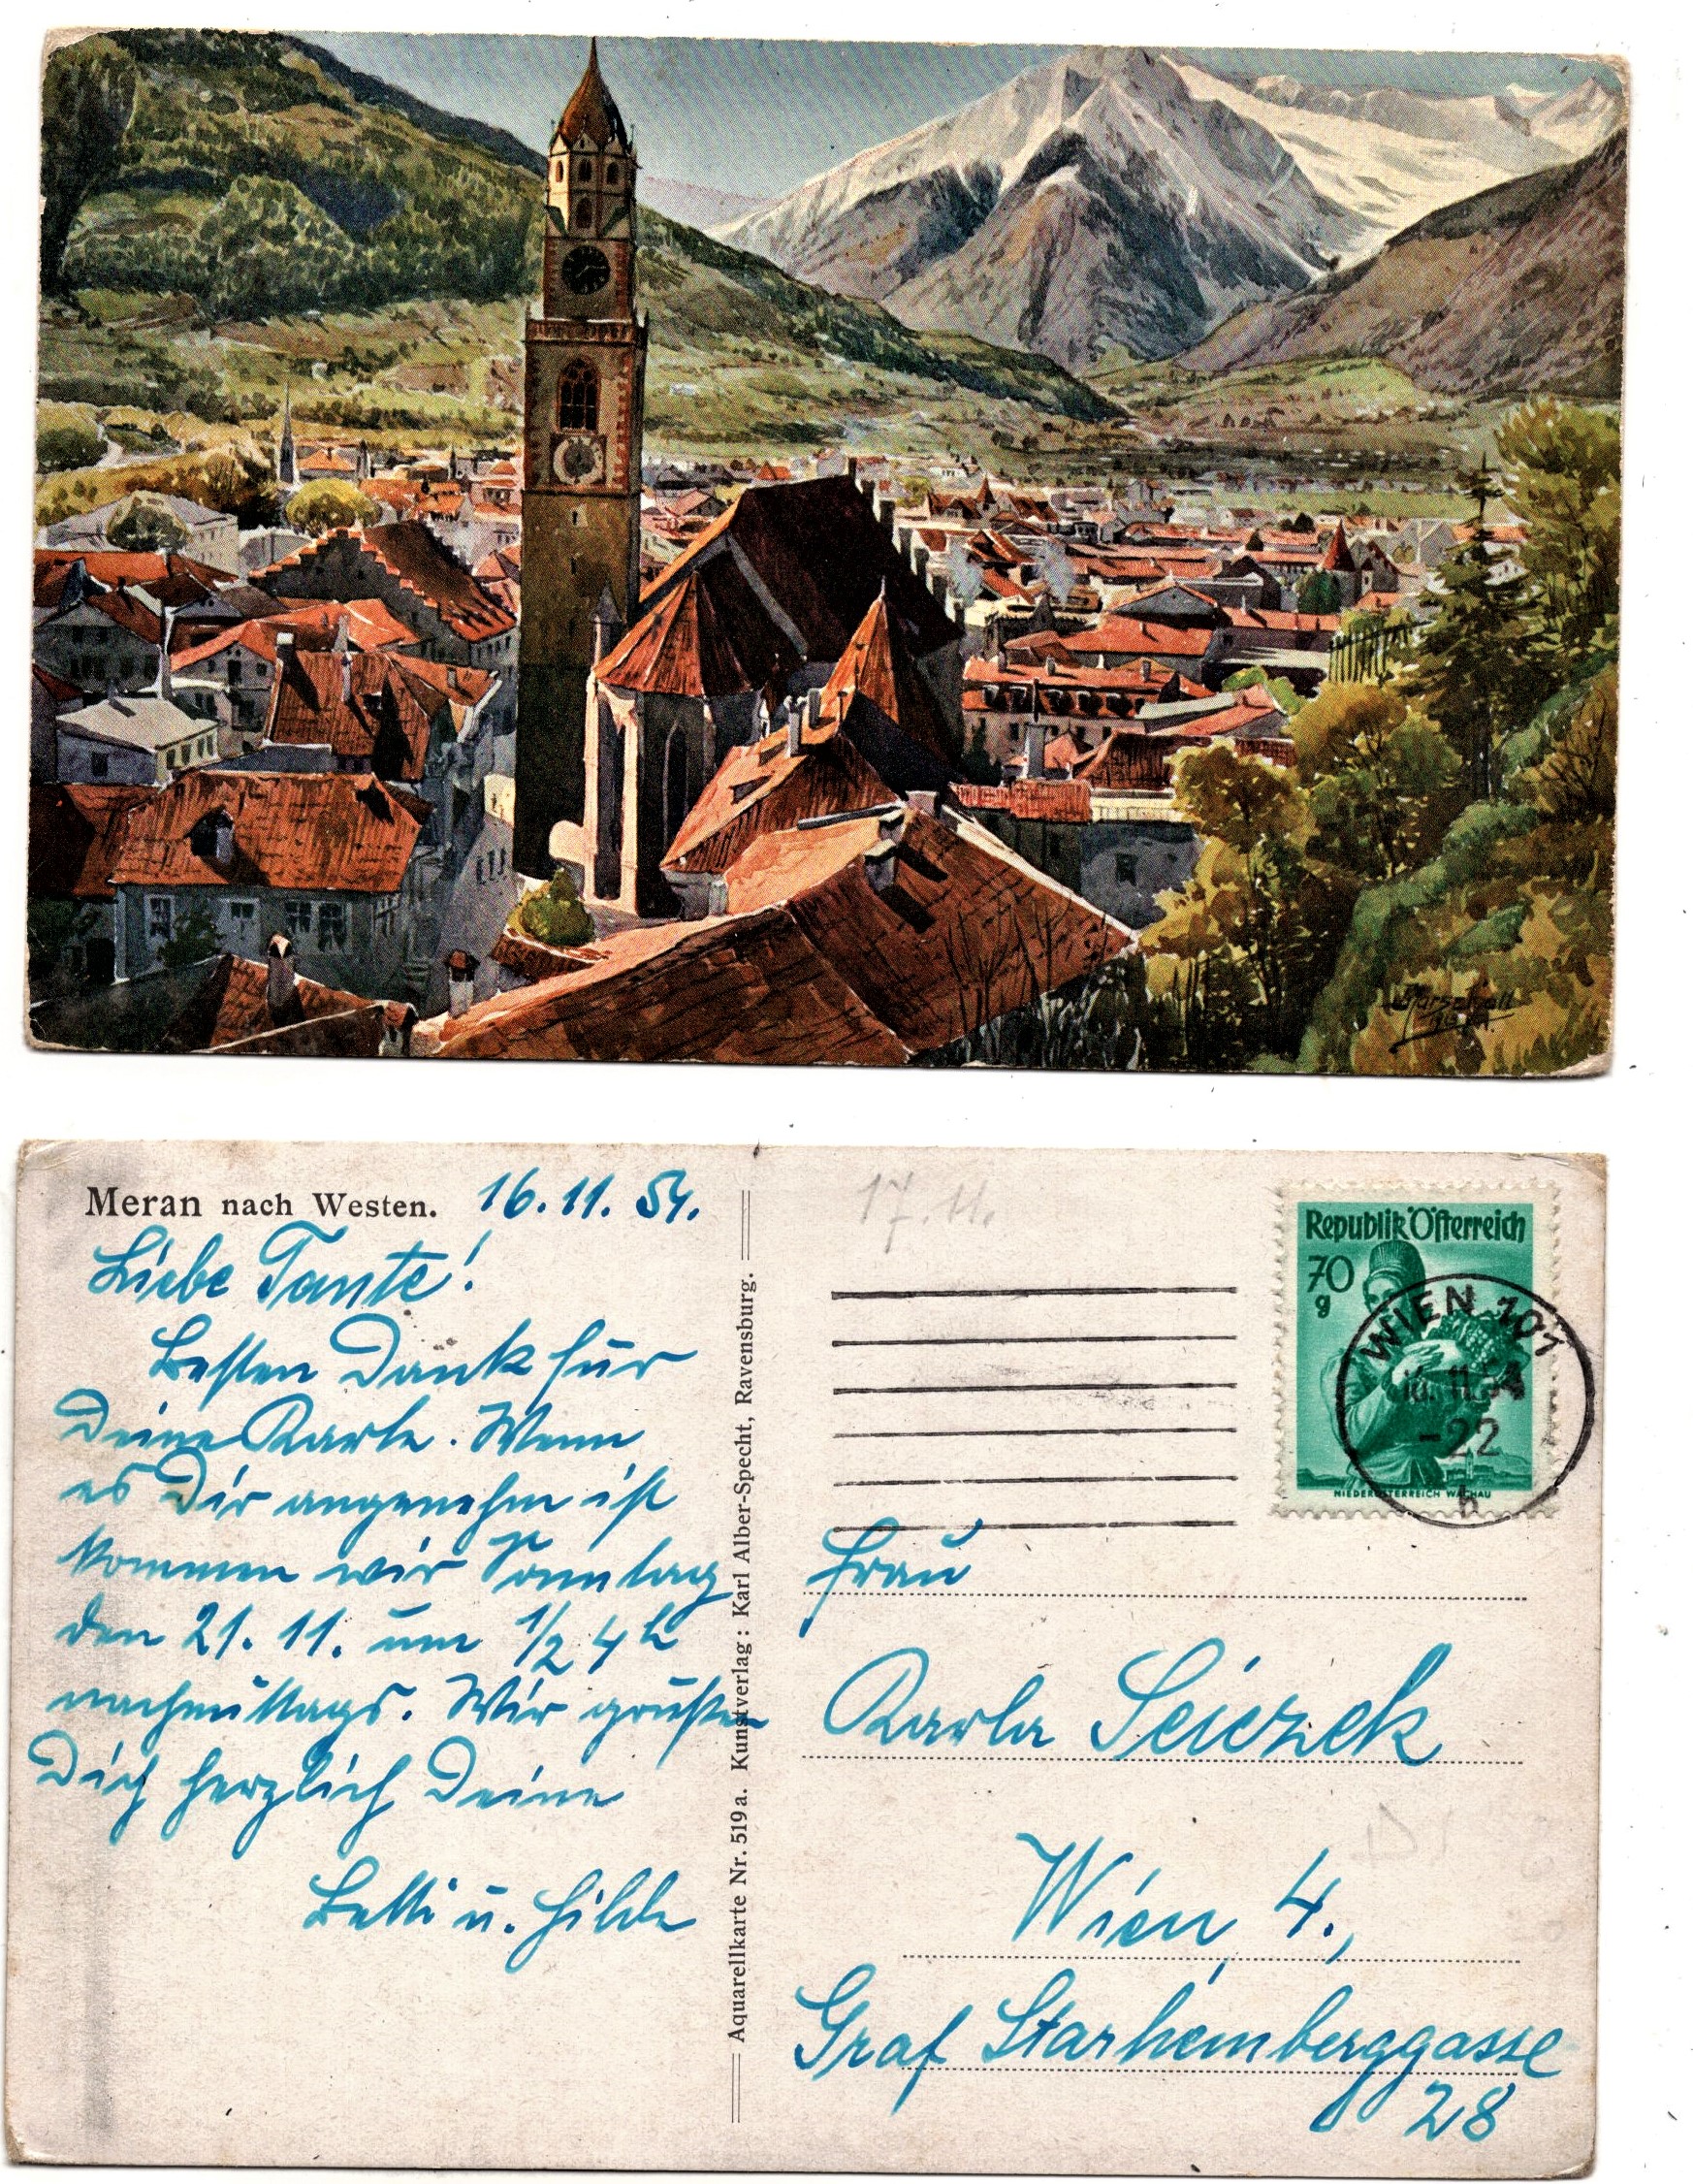 Meran nach Westen. 16.11.54.
Liebe Tante!
Besten Dank für
Deine Karte. Wenn
es Dir angenehm ist
kommen wir Sonntag
den 21.11. um 1/2 4 h
nachmittags. Wir grüßen
Dich herzlich Deine
Betti u. Hilde
Aquarellkarte Nr. 519a. Kunstverlag: Karl Alber-Specht, Ravensburg.
17.11.
Republik Österreich
70
g
NIEDERÖSTERREICH WACHAU
WIEN 101
16.11.54
-22
h
Frau
Karla
Wien, 4.,
Graf Starhemberggasse
28